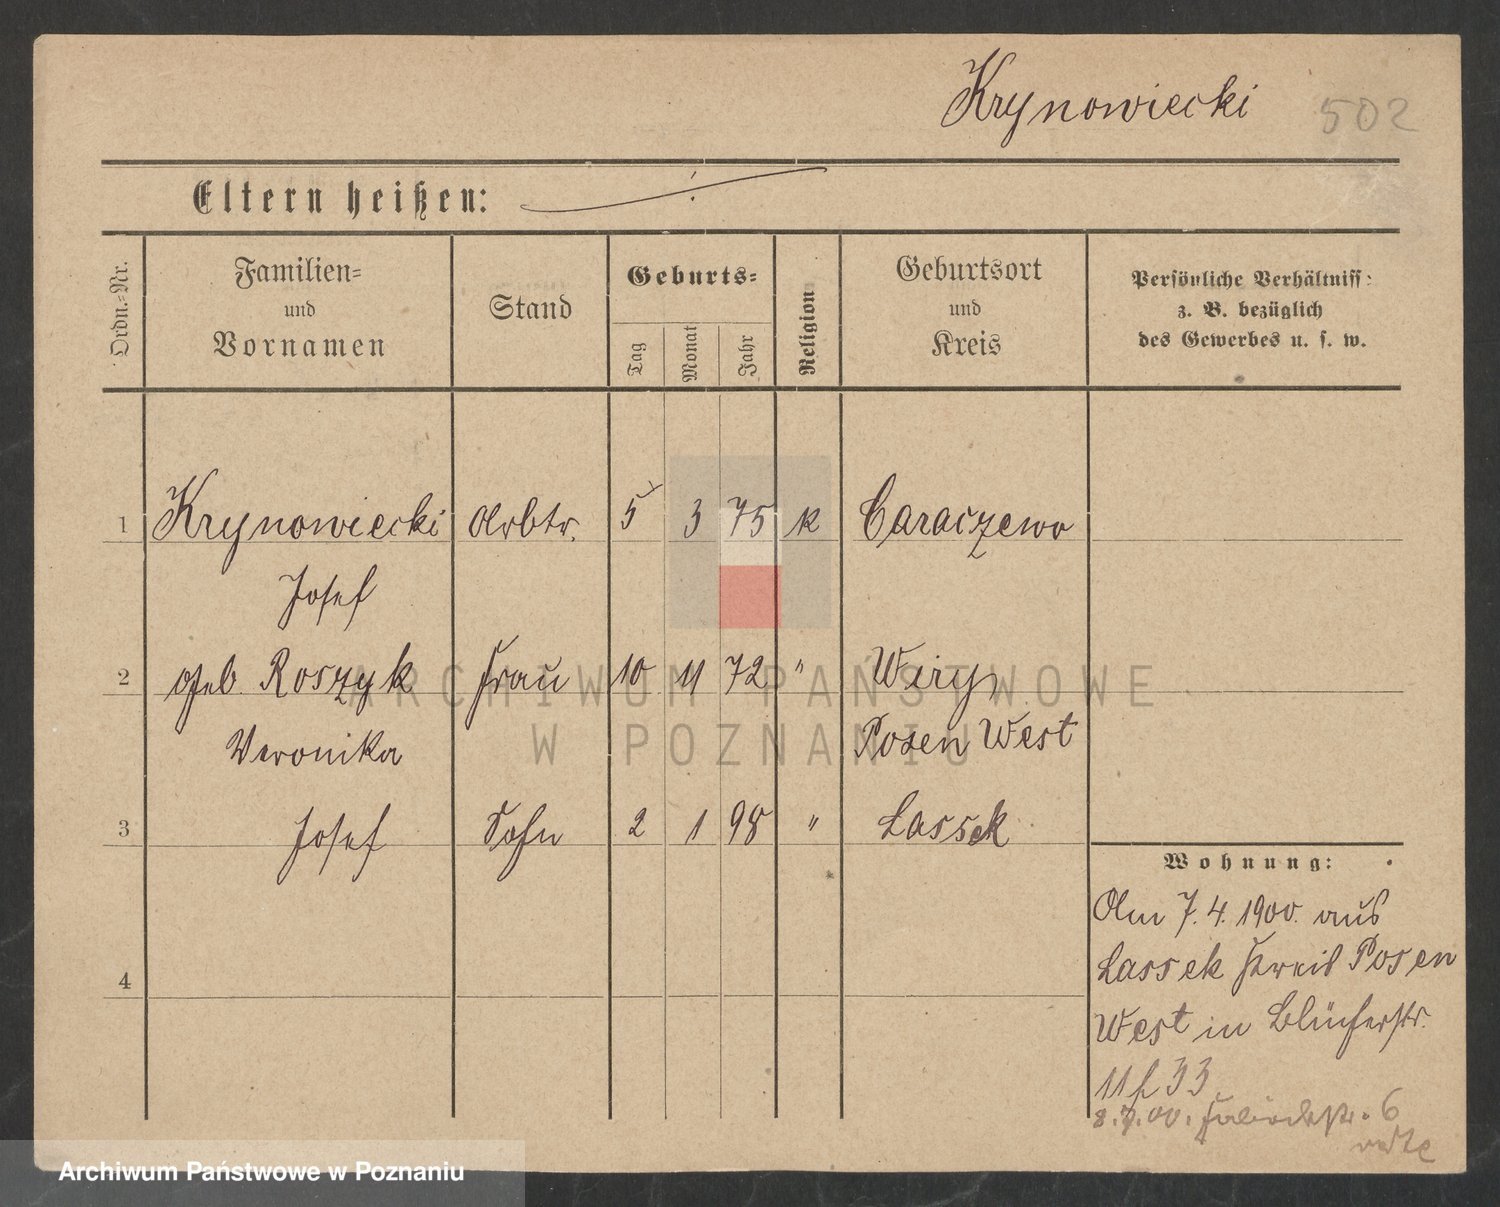 Krynowiecki 502
Eltern heißen: ./.
Ordn.-Nr.
Familien-
und
Vornamen
Stand
Geburts-
Tag
Monat
Jahr
Religion
Geburtsort
und
Kreis
Persönliche Verhältniss:
z. B. bezüglich
des Gewerbes u. s. w.
1 Krynowiecki Arbtr. 5 3 75 k Caraczewo
Josef
2 geb. Roszyk Frau 10 11 72 " Wiry
Veronika Posen West
3 Josef Sohn 2 1 98 " Lassek
4
Wohnung:
Am 7.4.1900. aus
Lassek Kreis Posen
West in Blücherstr.
11 b 33
8.7.00. 6
ARCHIWUM PAŃSTWOWE
W POZNANIU
Archiwum Państwowe w Poznaniu